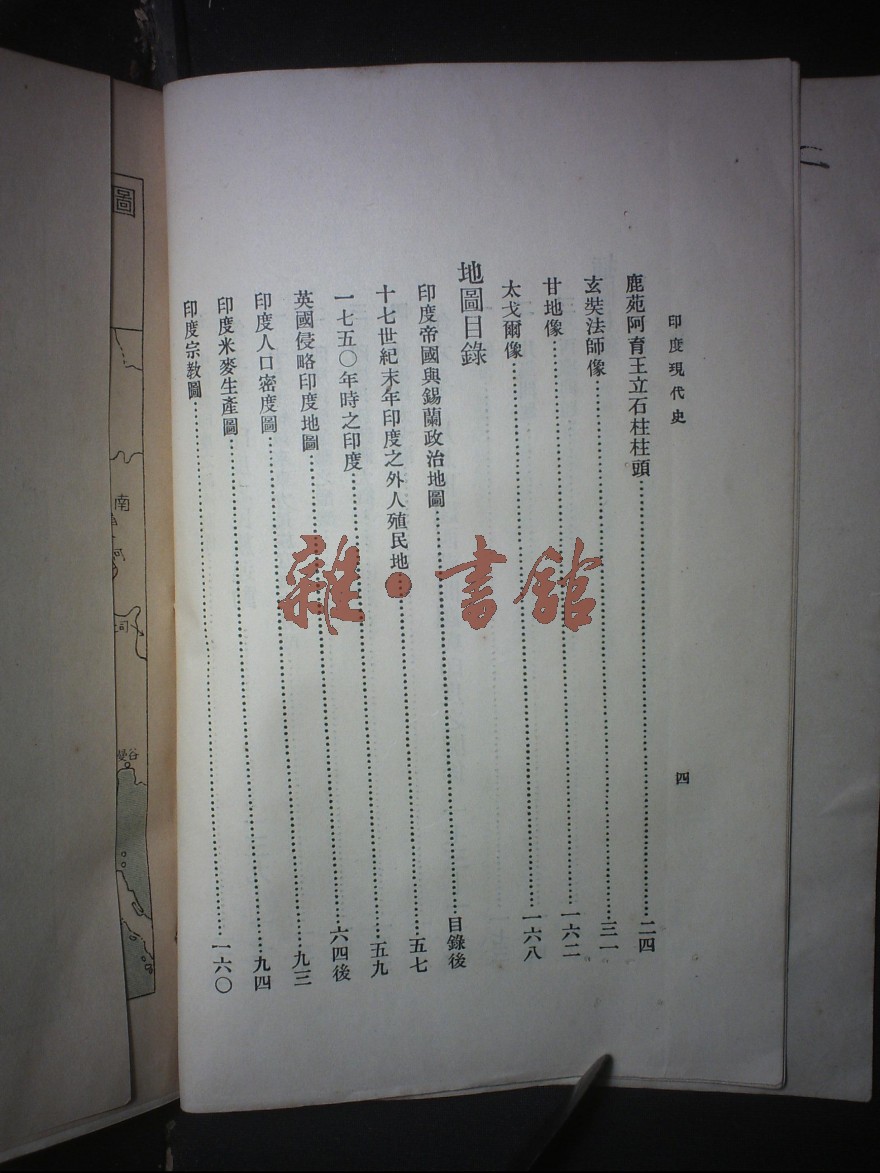 印度現代史
四
鹿苑阿育王立石柱柱頭……二四
玄奘法師像……三一
甘地像……一六二
太戈爾像……一六八
地圖目錄
印度帝國與錫蘭政治地圖……目錄後
十七世紀末年印度之外人殖民地……五七
一七五〇年時之印度……五九
英國侵略印度地圖……六四後
印度人口密度圖……九三
印度米麥生產圖……九四
印度宗教圖……一六〇
雜·書館
圖
南
谷曼